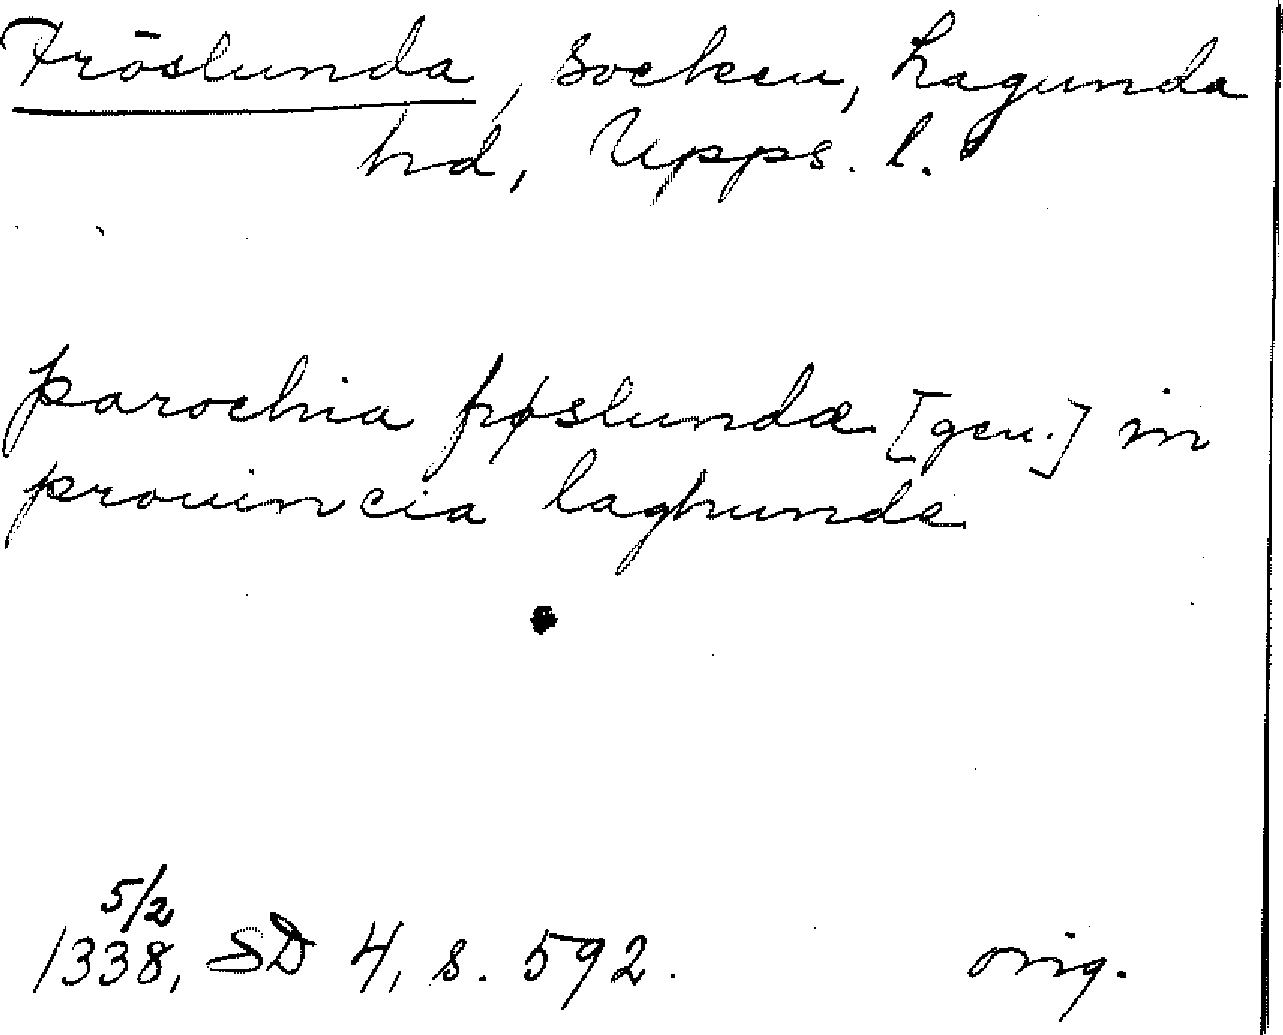 Fröslunda, socken, Lagunda
hd, Upps. l.
parochia frøslundæ [gen.] in
prouincia laghunde
5/2
1338, SD 4, s. 592. orig.